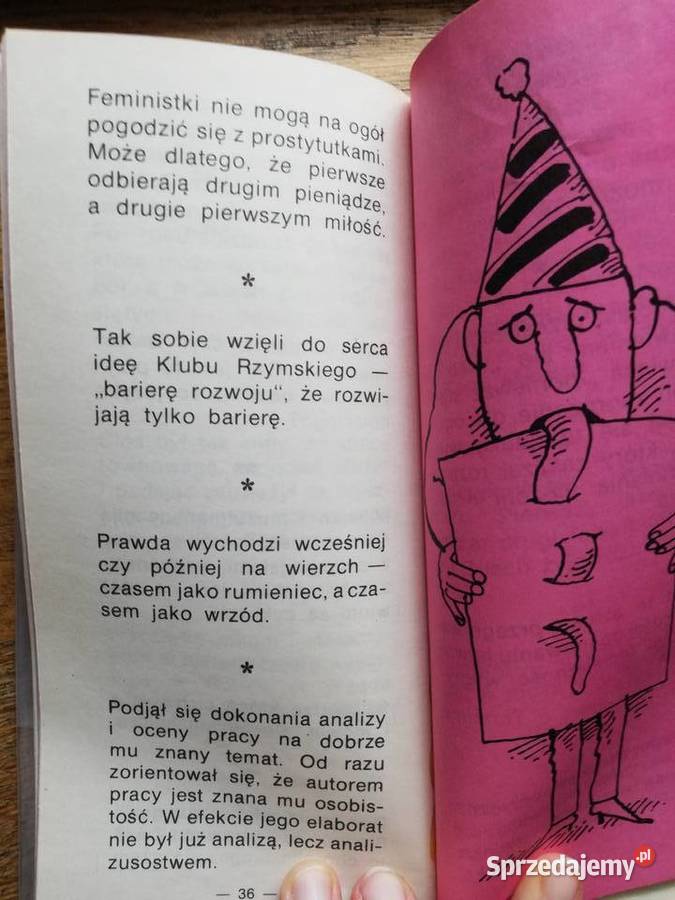 Feministki nie mogą na ogół
pogodzić się z prostytutkami.
Może dlatego, że pierwsze
odbierają drugim pieniądze,
a drugie pierwszym miłość.
*
Tak sobie wzięli do serca
ideę Klubu Rzymskiego —
„barierę rozwoju“, że rozwi-
jają tylko barierę.
*
Prawda wychodzi wcześniej
czy później na wierzch —
czasem jako rumieniec, a cza-
sem jako wrzód.
*
Podjął się dokonania analizy
i oceny pracy na dobrze
mu znany temat. Od razu
zorientował się, że autorem
pracy jest znana mu osobis-
tość. W efekcie jego elaborat
nie był już analizą, lecz anali-
zusostwem.
— 36 —
Sprzedajemy.pl